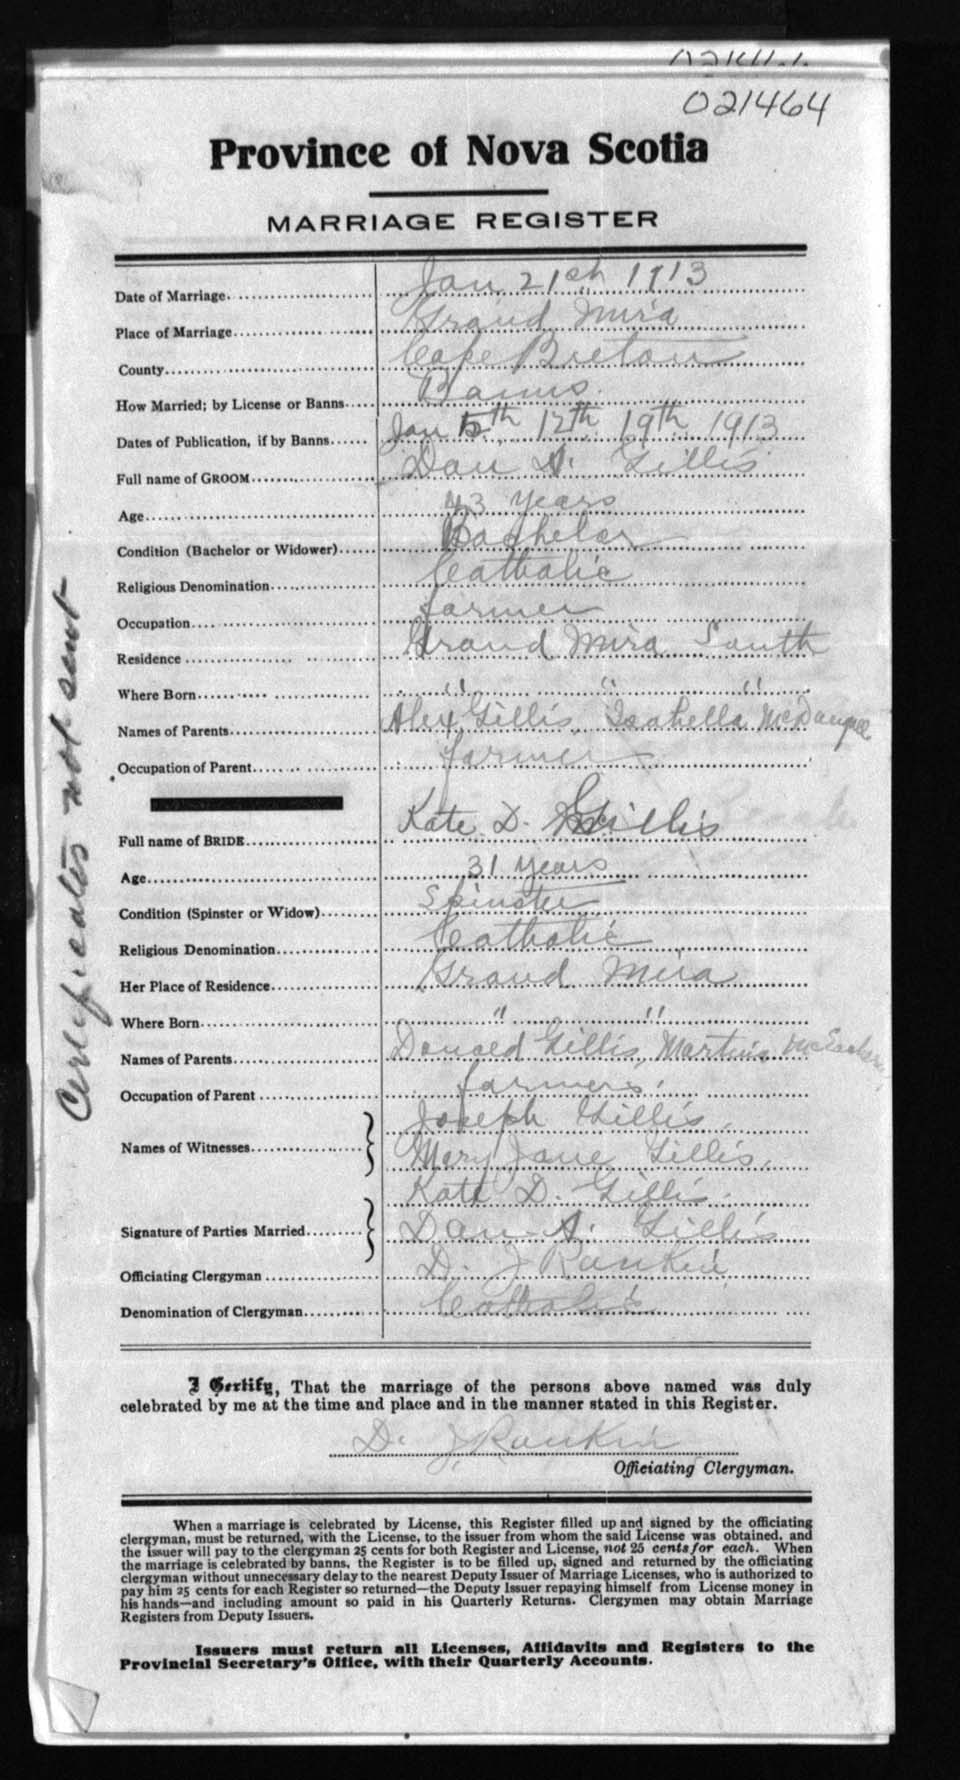 021464
Province of Nova Scotia
MARRIAGE REGISTER
Date of Marriage Jan 21st 1913
Place of Marriage Grand Mira
County Cape Breton
How Married; by License or Banns Banns
Dates of Publication, if by Banns Jan 5th 12th 19th 1913
Full name of GROOM Dan A. Gillis
Age 43 years
Condition (Bachelor or Widower) Bachelor
Religious Denomination Catholic
Occupation farmer
Residence Grand Mira South
Where Born " " "
Names of Parents Alex Gillis, Isabella McDougall
Occupation of Parent farmer
Full name of BRIDE Kate D. Gillis
Age 31 years
Condition (Spinster or Widow) Spinster
Religious Denomination Catholic
Her Place of Residence Grand Mira
Where Born " "
Names of Parents Donald Gillis,
Occupation of Parent farmers.
Names of Witnesses Joseph Gillis.
Mary Jane Gillis.
Kate D. Gillis.
Signature of Parties Married Dan A. Gillis
Officiating Clergyman D. J Rankin
Denomination of Clergyman Catholic
Certificates not sent
I Certify, That the marriage of the persons above named was duly
celebrated by me at the time and place and in the manner stated in this Register.
D. J. Rankin
Officiating Clergyman.
When a marriage is celebrated by License, this Register filled up and signed by the officiating
clergyman, must be returned, with the License, to the issuer from whom the said License was obtained, and
the issuer will pay to the clergyman 25 cents for both Register and License, not 25 cents for each. When
the marriage is celebrated by banns, the Register is to be filled up, signed and returned by the officiating
clergyman without unnecessary delay to the nearest Deputy Issuer of Marriage Licenses, who is authorized to
pay him 25 cents for each Register so returned—the Deputy Issuer repaying himself from License money in
his hands—and including amount so paid in his Quarterly Returns. Clergymen may obtain Marriage
Registers from Deputy Issuers.
Issuers must return all Licenses, Affidavits and Registers to the
Provincial Secretary's Office, with their Quarterly Accounts.